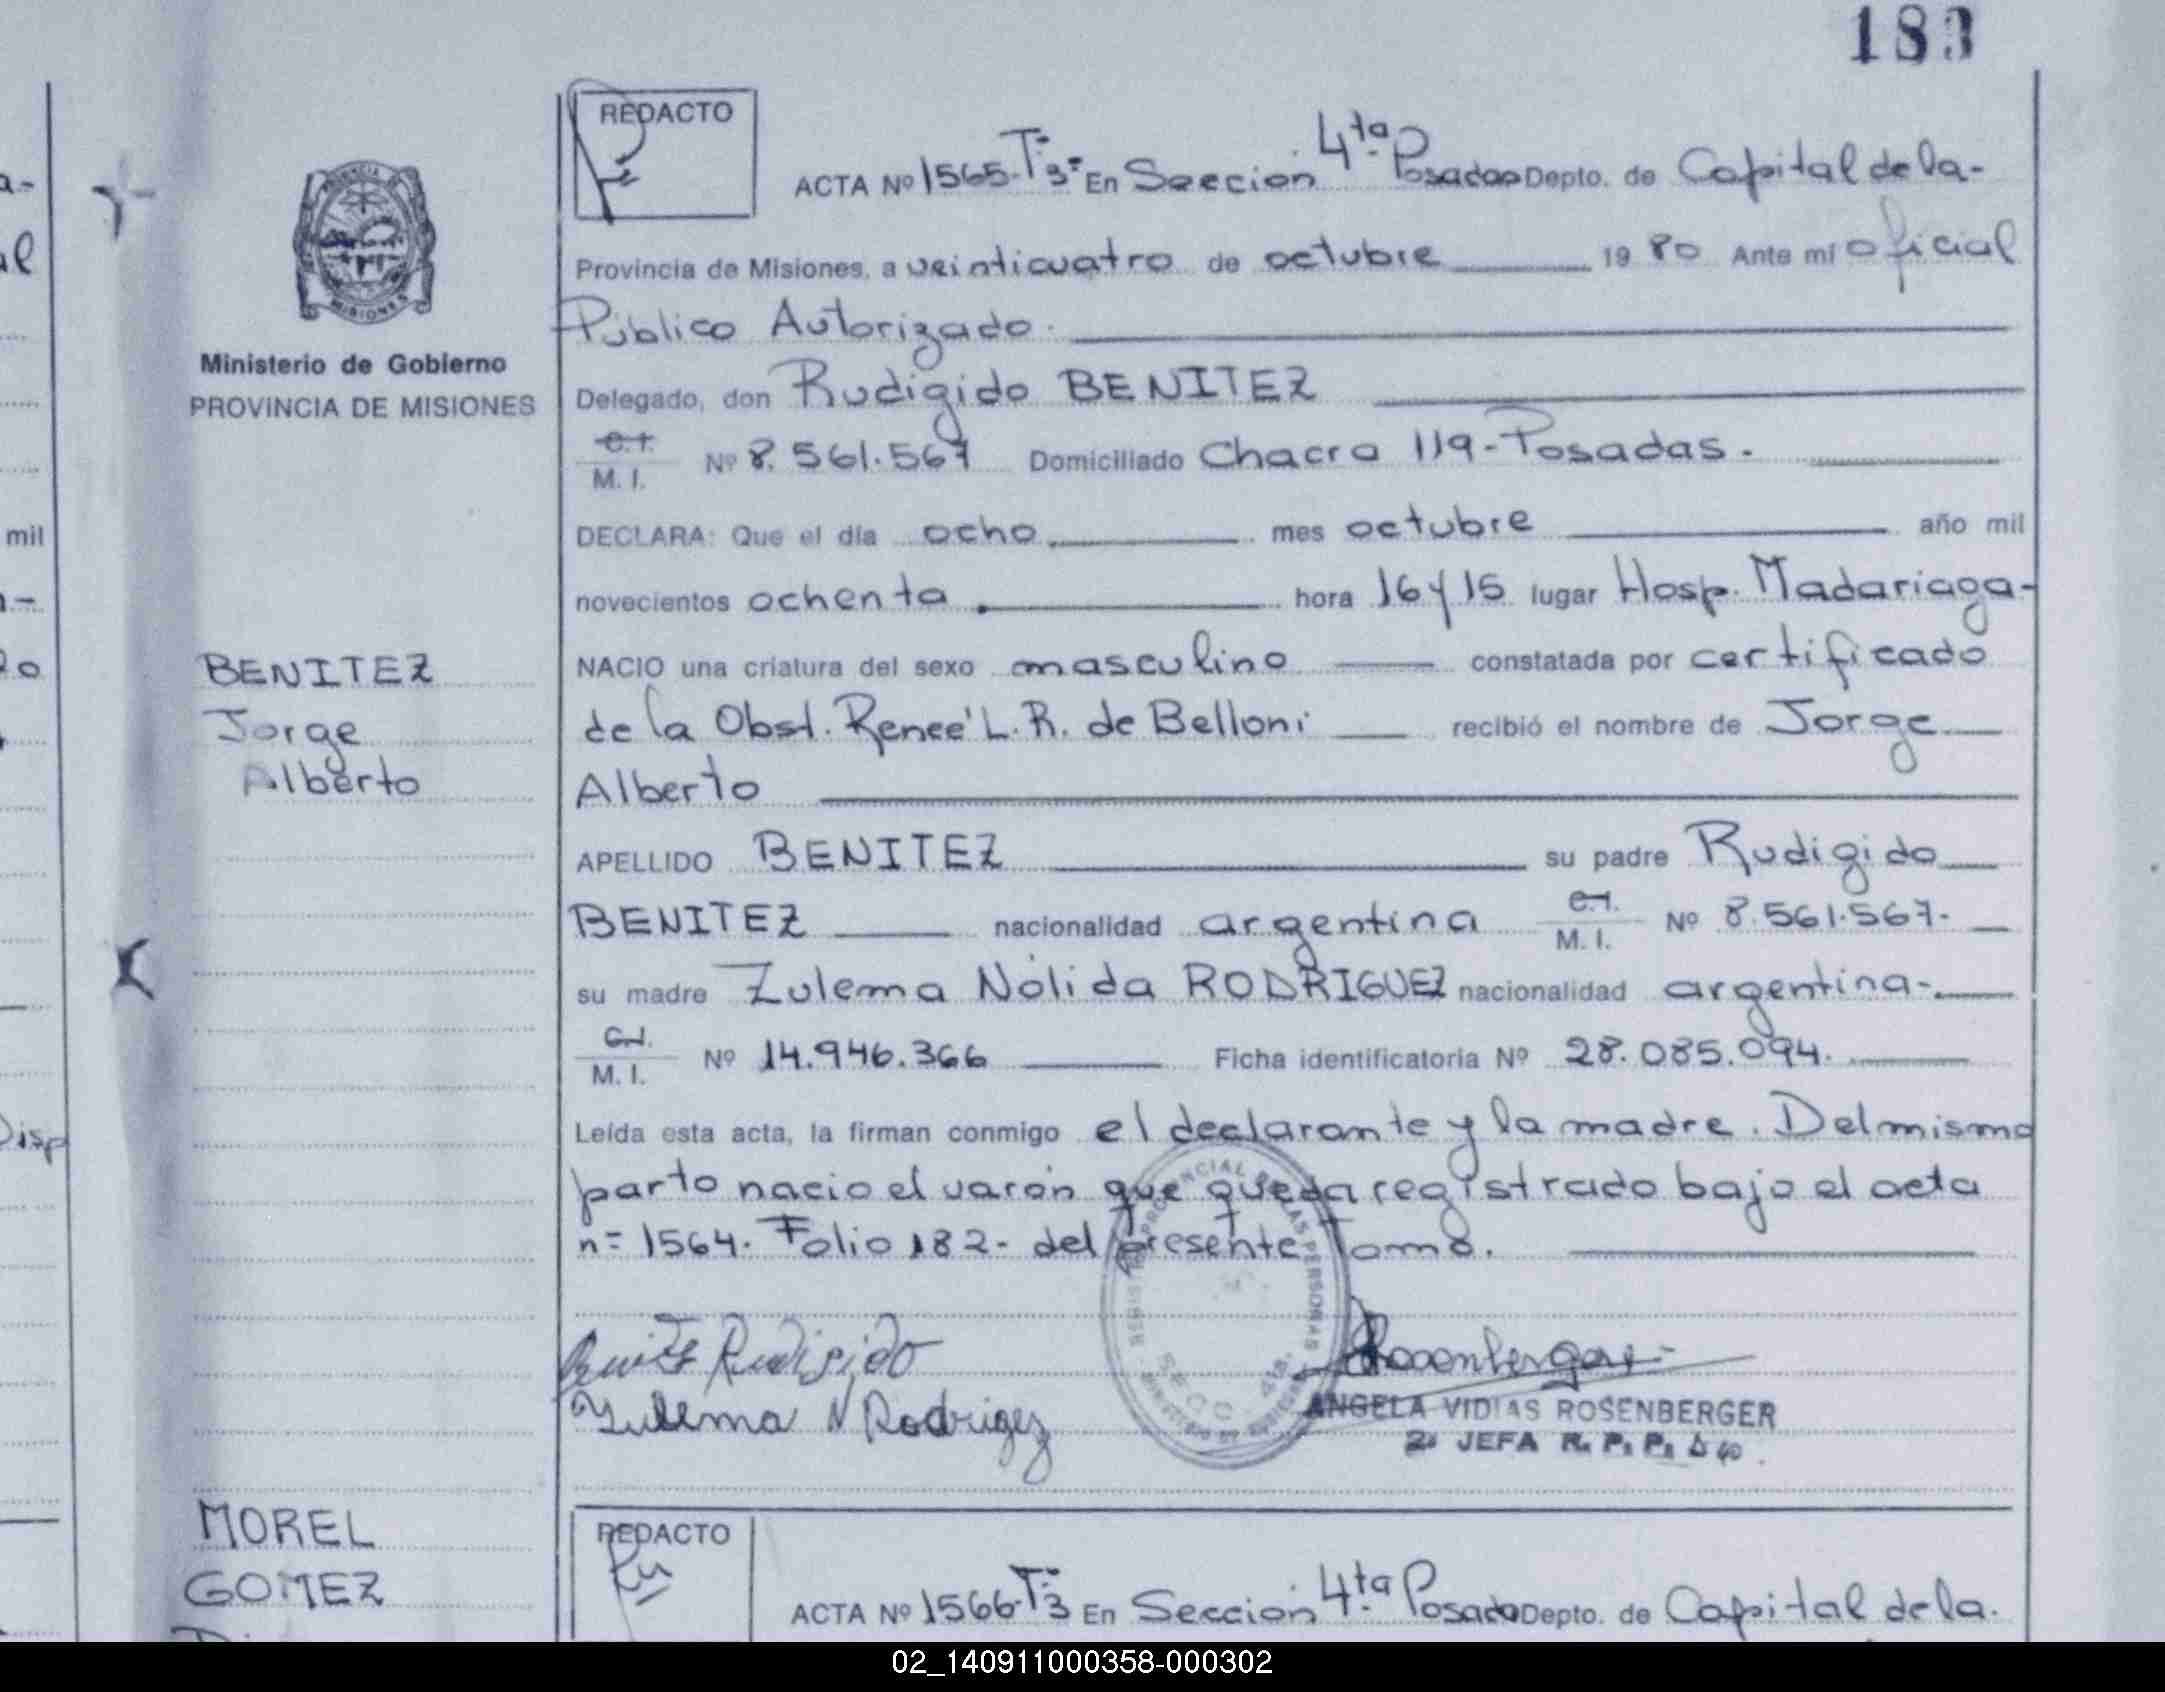 183
REDACTO
ACTA Nº 1565-Tº3º En Sección 4ta. Posadas Depto. de Capital de la-
Provincia de Misiones, a veinticuatro de octubre 19 80 Ante mí oficial
Público Autorizado.
Delegado, don Rudigido BENITEZ
C.I.
M. I. Nº 8.561.567 Domiciliado Chacra 119-Posadas.
DECLARA: Que el día ocho mes octubre año mil
novecientos ochenta hora 16 y 15 lugar Hosp. Madariaga-
NACIO una criatura del sexo masculino constatada por certificado
de la Obst. Reneé L. R. de Belloni recibió el nombre de Jorge
Alberto
APELLIDO BENITEZ su padre Rudigido
BENITEZ nacionalidad argentina C.I. M. I. Nº 8.561.567.
su madre Zulema Nólida RODRIGUEZ nacionalidad argentina-
C.I.
M. I. Nº 14.946.366 Ficha identificatoria Nº 28.085.094.
Leída esta acta, la firman conmigo el declarante y la madre. Del mismo
parto nacio el varón que queda registrado bajo el acta
nº 1564. Folio 182- del presente Tomo.
Rudigido
Zulema N Rodrigez
Rosenberger
ANGELA VIDIAS ROSENBERGER
2ª JEFA R. P. P.
PROVINCIAL DE LAS PERSONAS
SECC. 4ta.
Ministerio de Gobierno
PROVINCIA DE MISIONES
MISIONES
BENITEZ
Jorge
Alberto
MOREL
GOMEZ
REDACTO
ACTA Nº 1566-Tº3 En Sección 4ta. Posadas Depto. de Capital de la.
mil
Disp
02_140911000358-000302